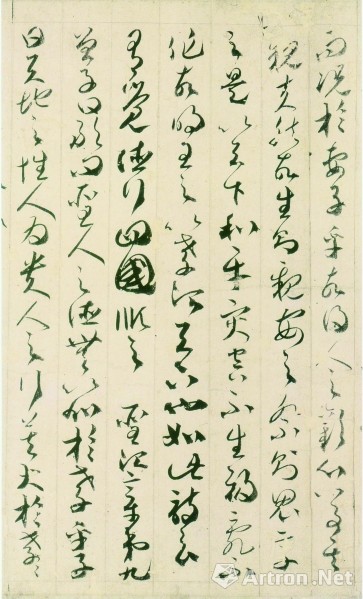 而況於妻子乎故得人之歡心以事其
親夫然故生則親安之祭則鬼享
之是以天下和平災害不生禍亂不
作故明王之以孝治天下也如此詩云
有覺德行四國順之 聖治章第九
曾子曰敢問聖人之德無以加於孝乎子
曰天地之性人為貴人之行莫大於孝々
Artron.Net